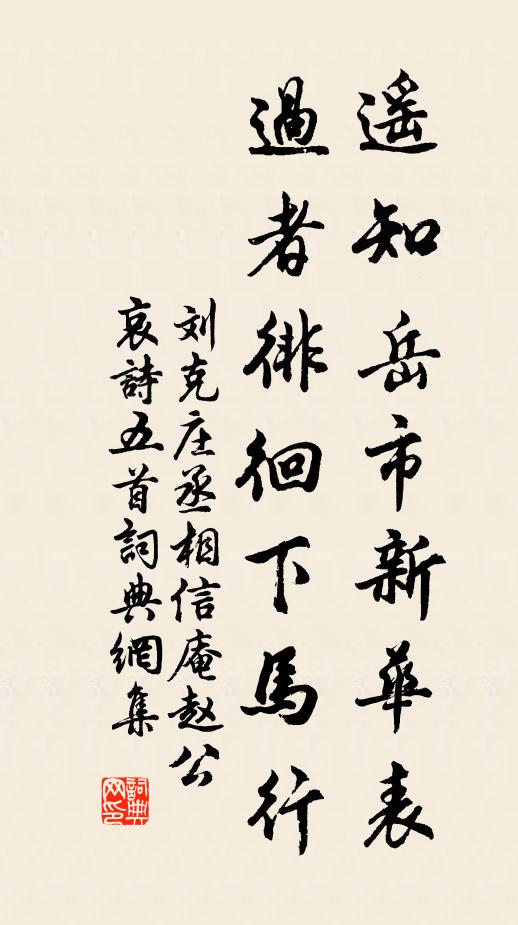 遥知岳市新華表
過者徘徊下馬行
刘克庄丞相信庵赵公
哀詩五首詞典網集
詞典网印